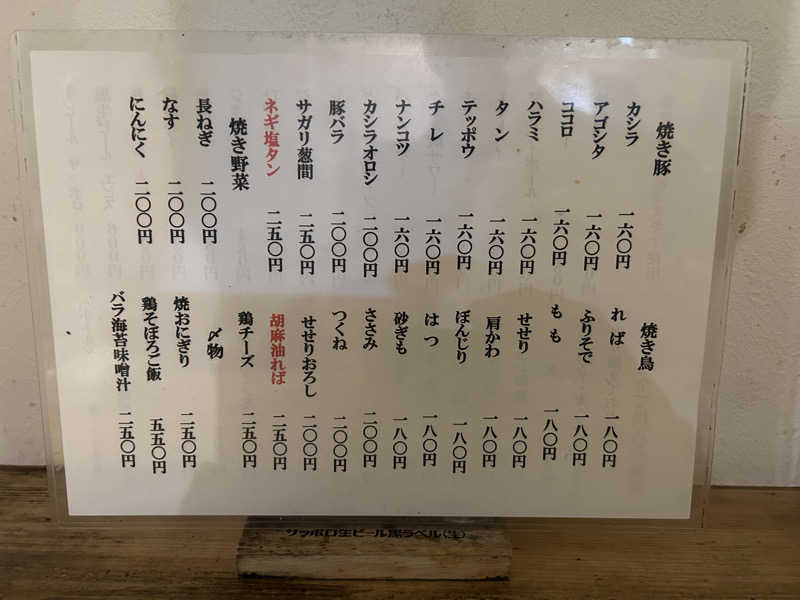 焼き豚
カシラ 一六〇円
アゴシタ 一六〇円
ココロ 一六〇円
ハラミ 一六〇円
タン 一六〇円
テッポウ 一六〇円
チレ 一六〇円
ナンコツ 一六〇円
カシラオロシ 二〇〇円
豚バラ 二〇〇円
サガリ葱間 二五〇円
ネギ塩タン 二五〇円
焼き野菜
長ねぎ 二〇〇円
なす 二〇〇円
にんにく 二〇〇円
焼き鳥
れば 一八〇円
ふりそで 一八〇円
もも 一八〇円
せせり 一八〇円
肩かわ 一八〇円
ぼんじり 一八〇円
はつ 一八〇円
砂ぎも 一八〇円
ささみ 二〇〇円
つくね 二〇〇円
せせりおろし 二〇〇円
胡麻油れば 二五〇円
鶏チーズ 二五〇円
〆物
焼おにぎり 二五〇円
鶏そぼろご飯 五五〇円
バラ海苔味噌汁 二五〇円
サッポロ生ビール黒ラベル(生)